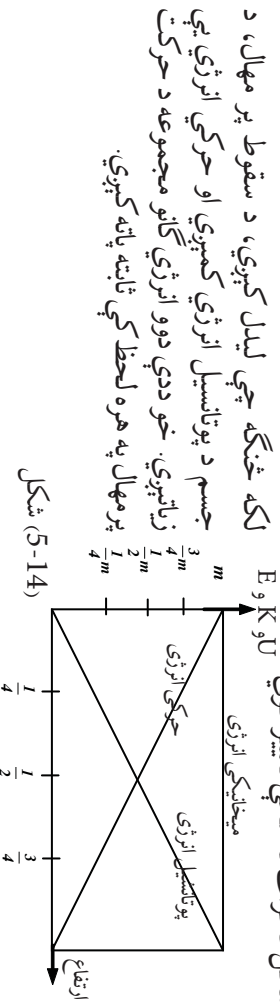 لکه څنګه چې لیدل کیږي، د سقوط پر مهال، د
جسم د پوتانسیل انرژي کمیږي او حرکي انرژي یې
زیاتیږي. خو ددې دوو انرژي ګانو مجموعه د حرکت
پر مهال په هره لحظ کې ثابته پاته کیږي.
شکل (5-14)
E و K و U
m
3/4 m
1/2 m
1/4 m
میخانیکي انرژي
حرکي انرژي
پوتانسیل انرژي
1/4
1/2
3/4
ارتفاع